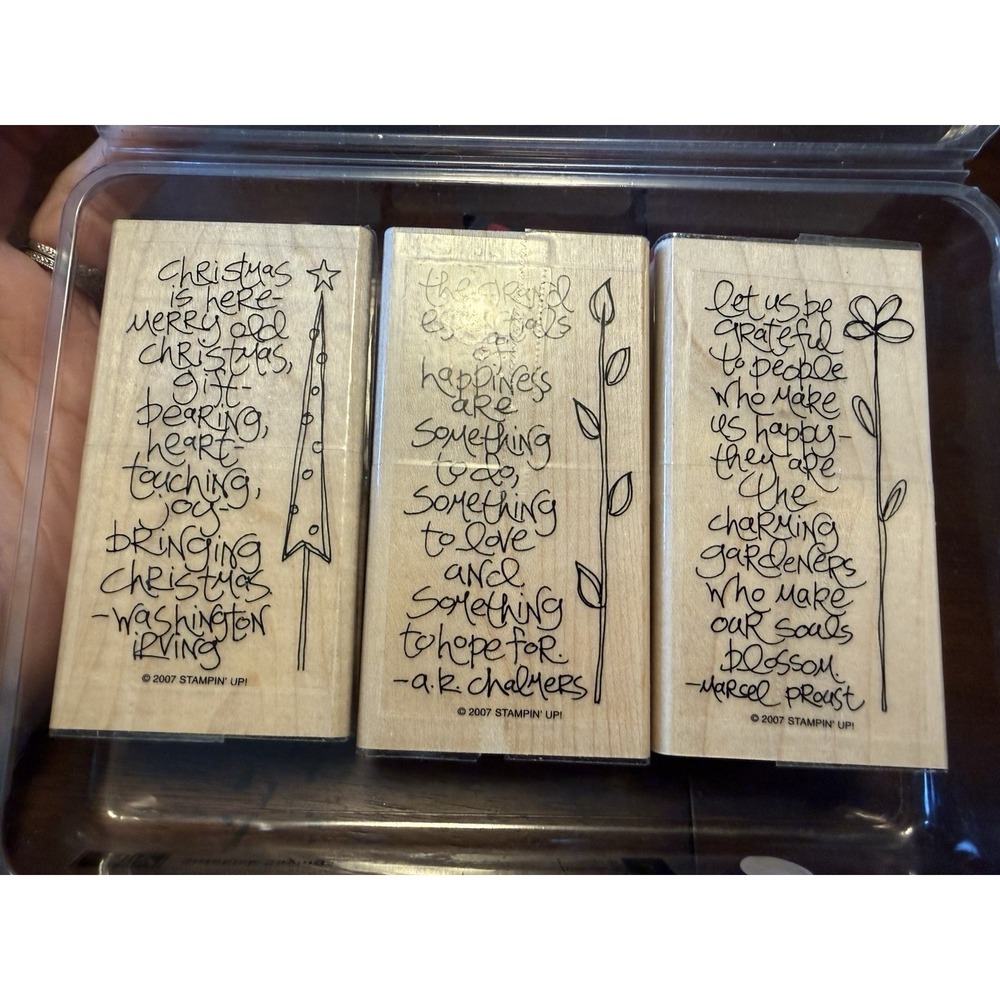 Christmas
is here-
merry old
Christmas,
gift-
bearing,
heart-
touching,
joy-
bringing
Christmas.
-Washington
Irving
© 2007 STAMPIN' UP!
the grand
essentials
of
happiness
are
something
to do,
something
to love
and
something
to hope for.
-a.k. chalmers
© 2007 STAMPIN' UP!
let us be
grateful
to people
who make
us happy-
they are
the
charming
gardeners
who make
our souls
blossom.
-Marsel Proust
© 2007 STAMPIN' UP!